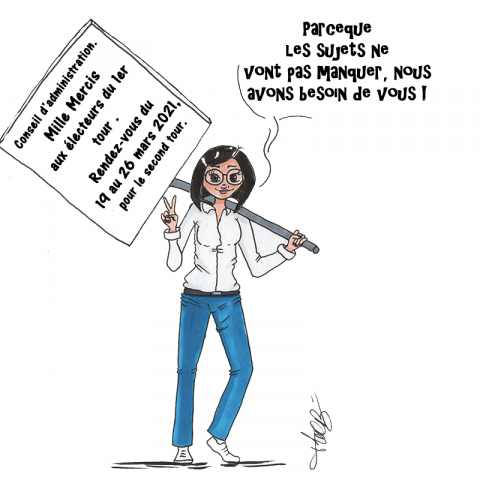 Conseil d'administration.
Mille Mercis
aux électeurs du 1er
tour .
Rendez-vous du
19 au 26 mars 2021,
pour le second tour.
Parceque
les sujets ne
vont pas manquer, nous
avons besoin de vous !